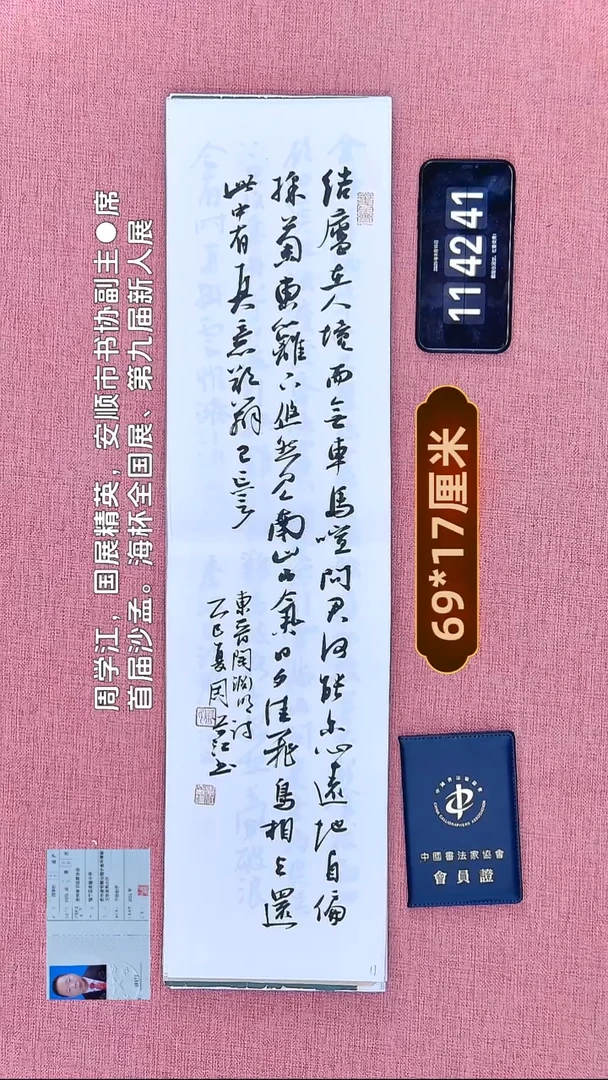 结廬在人境而無車馬喧問君何能尔心遠地自偏
採菊東籬下悠然見南山山氣日夕佳飛鳥相与還
此中有真意欲辨已忘言
東晋陶淵明詩
乙巳夏周学江书
周学江，国展精英，安顺市书协副主●席
首届沙孟。海杯全国展、第九届新人展
11 42 41
69*17厘米
CHINA CALLIGRAPHERS ASSOCIATION
中國書法家協會
會員證